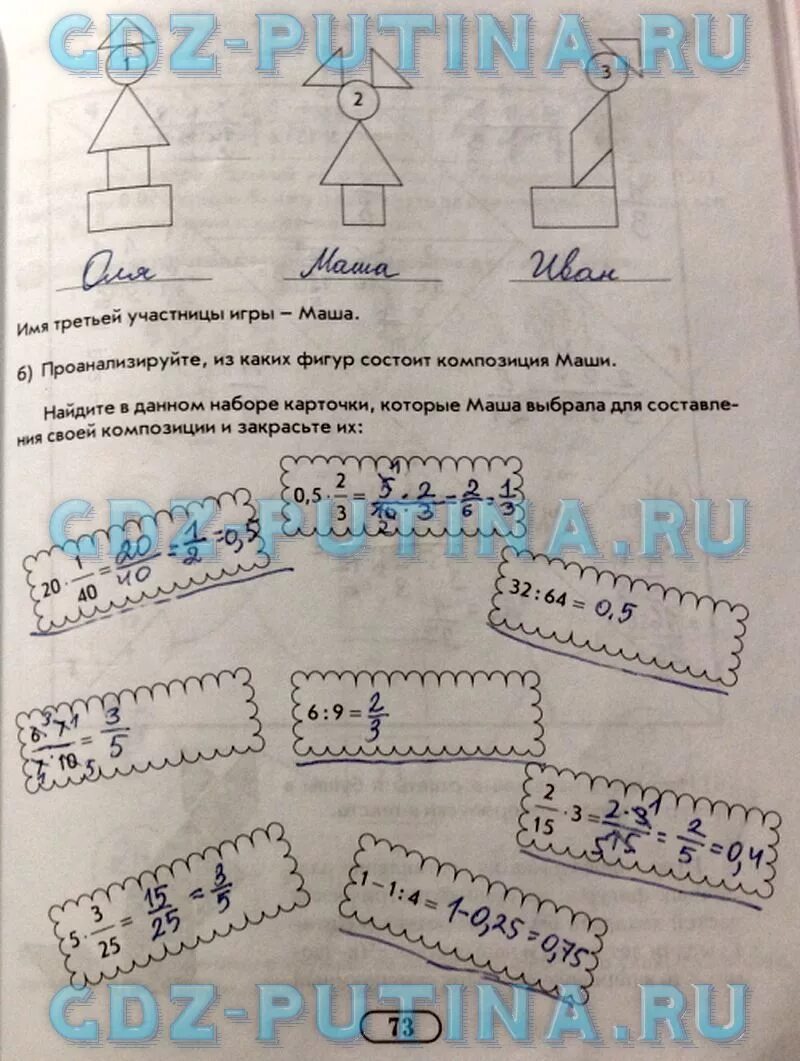 GDZ-PUTINA.RU
1
2
3
Оля Маша Иван
Имя третьей участницы игры – Маша.
б) Проанализируйте, из каких фигур состоит композиция Маши.
Найдите в данном наборе карточки, которые Маша выбрала для составле-
ния своей композиции и закрасьте их:
0,5 · 2/3 = 5/10 · 2/3 = 2/6 = 1/3
GDZ-PUTINA.RU
20 · 1/40 = 20/40 = 1/2 = 0,5
32 : 64 = 0,5
6 · 7 / 7 · 10 = 3/5
6 : 9 = 2/3
2/15 · 3 = 2 · 3/15 = 2/5 = 0,4
5 · 3/25 = 15/25 = 3/5
1 – 1 : 4 = 1 - 0,25 = 0,75
GDZ-PUTINA.RU
73